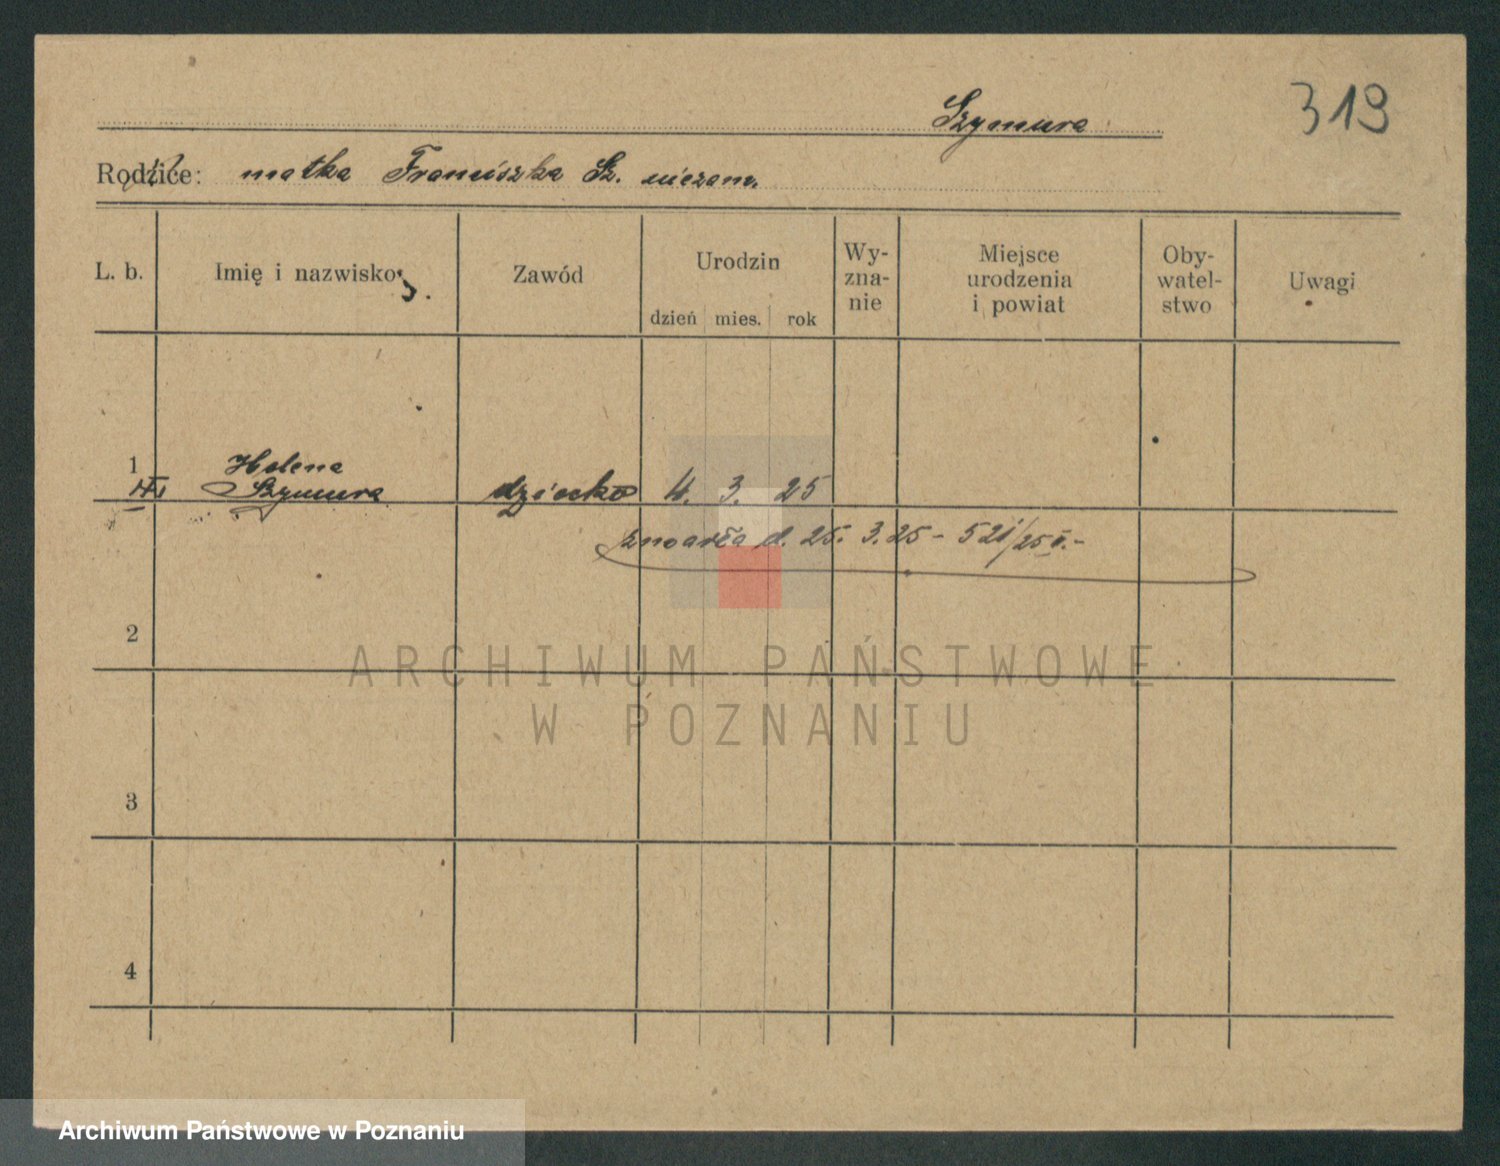 Szymura
319
Rodzice: matka Franciszka Sz. niezam.
L. b. Imię i nazwisko Zawód Urodzin dzień mies. rok Wy-
zna-
nie Miejsce
urodzenia
i powiat Oby-
watel-
stwo Uwagi
1 Helena
Szymura dziecko 4. 3. 25
zmarła d. 25. 3. 25 - 521/25
2
ARCHIWUM PAŃSTWOWE
W POZNANIU
3
4
Archiwum Państwowe w Poznaniu